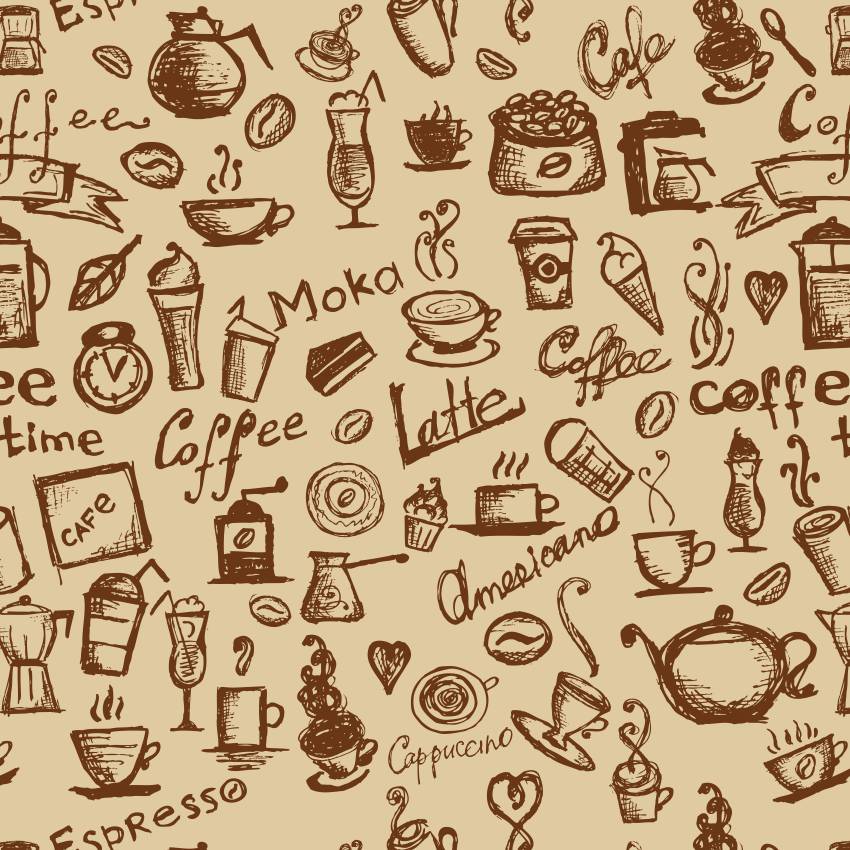 Espr
Cafe
ffee
Co
Moka
Coffee
ee
coffe
time
Coffee
Latte
t
CAFe
Americano
Cappuccino
Espresso